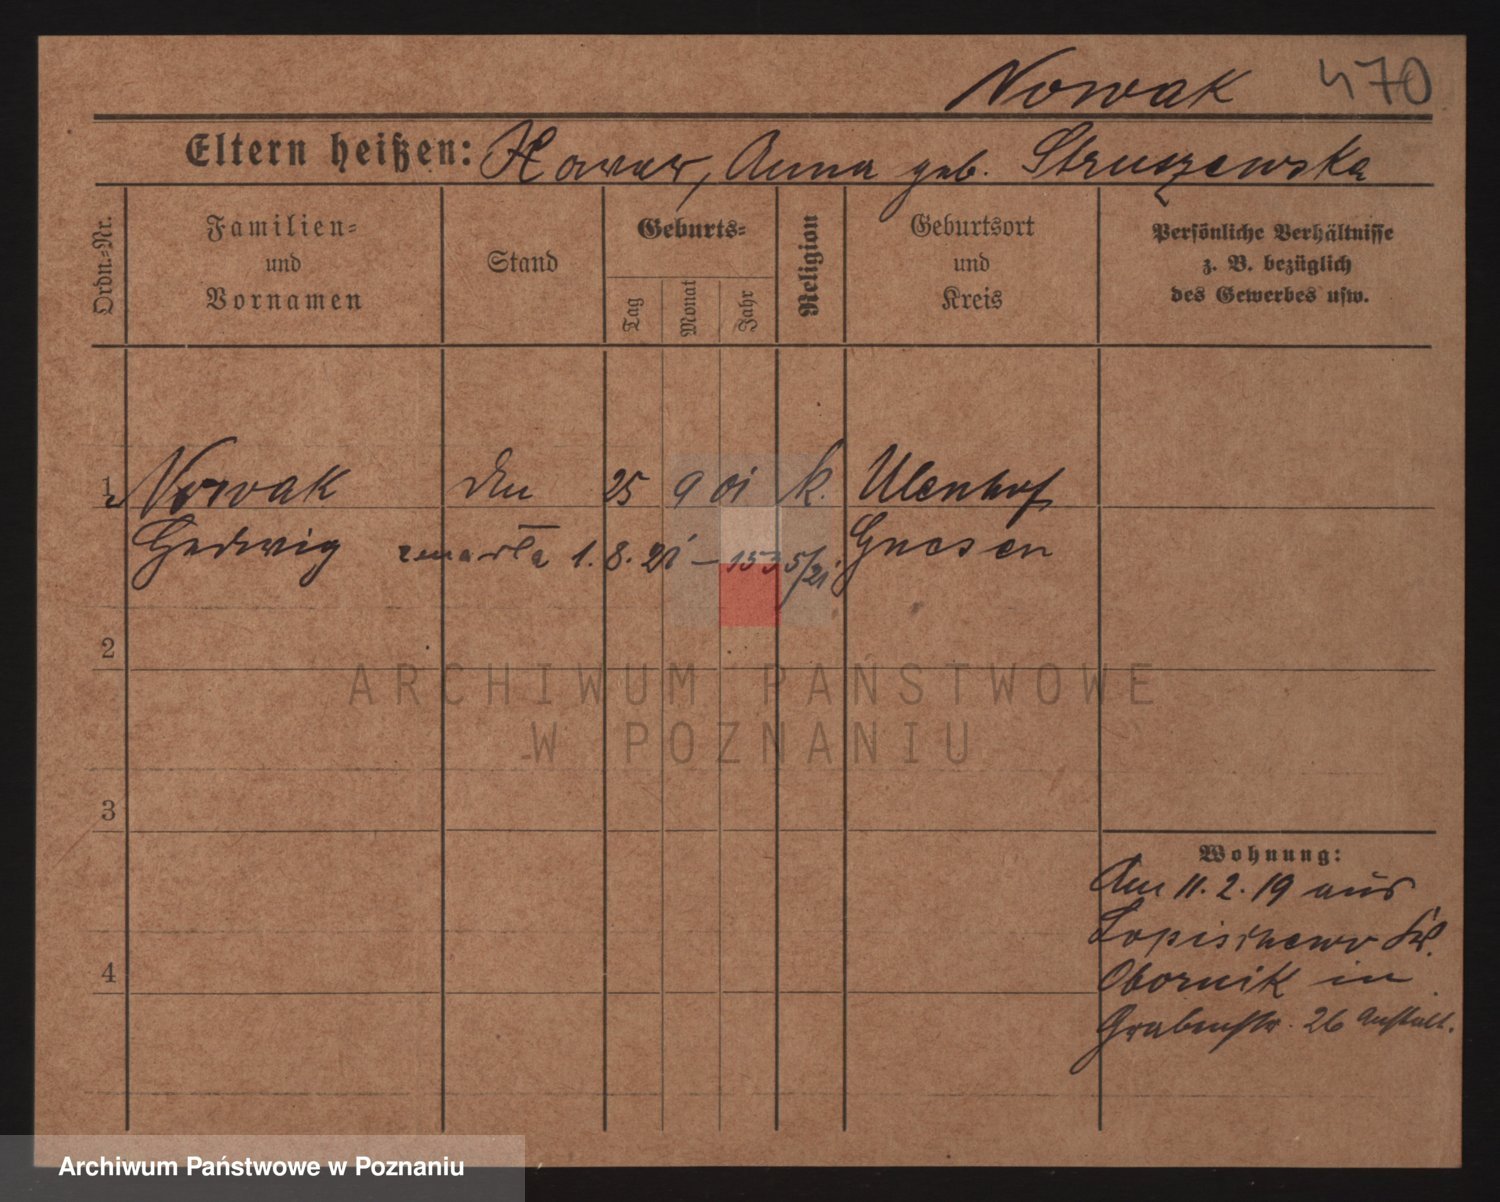 Nowak 470
Eltern heißen: Xaver, Anna geb. Struszewska
Ordn.-Nr.
Familien-
und
Vornamen
Stand
Geburts-
Tag
Monat
Jahr
Religion
Geburtsort
und
Kreis
Persönliche Verhältnisse
z. B. bezüglich
des Gewerbes usw.
1 Nowak 25 9 01 k. Ulenhof
Hedwig zmarła 1. 8. 21 – 1535/21 Gnesen
2
ARCHIWUM PAŃSTWOWE
W POZNANIU
3
Wohnung:
Am 11. 2. 19 aus
Lopischewo Kr.
4
Obornik in
Grabenstr. 26 Anstalt.
Archiwum Państwowe w Poznaniu